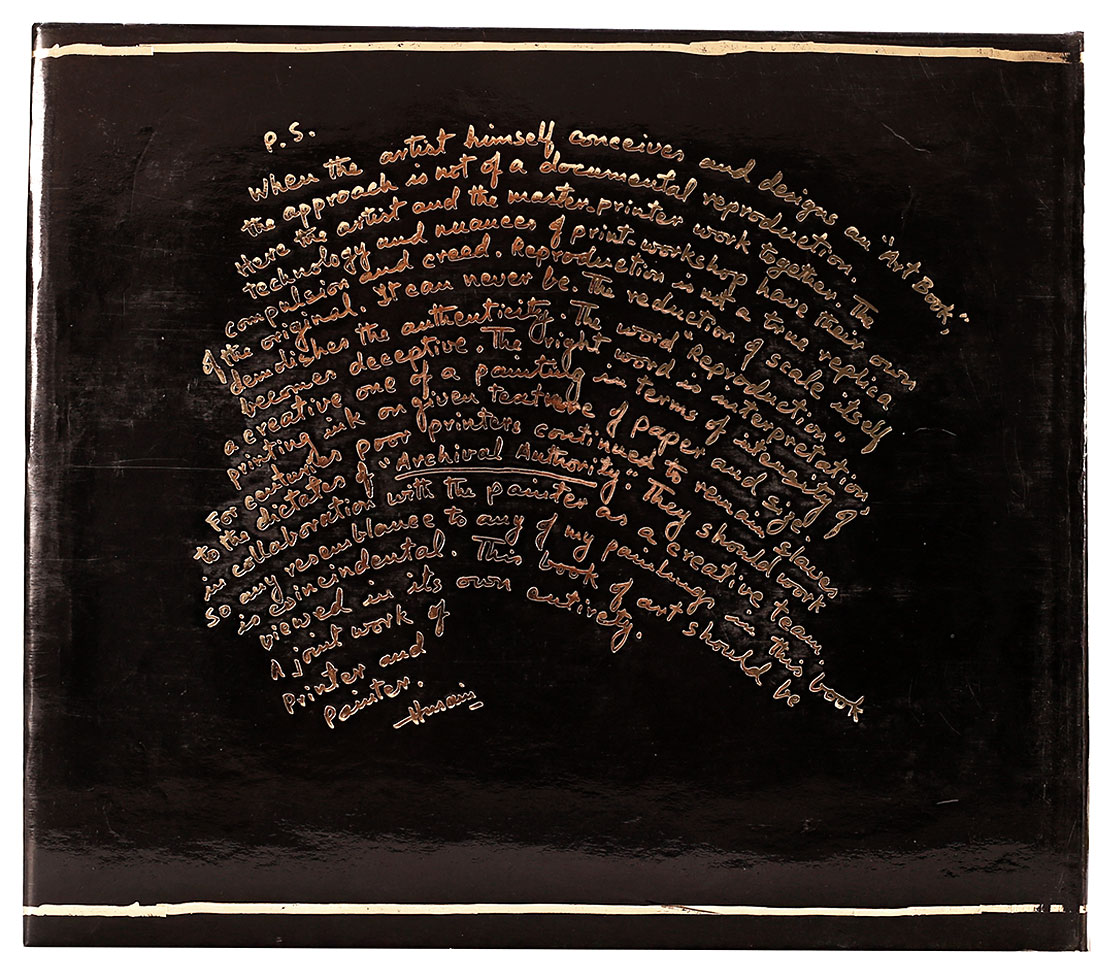 P.S.
When the artist himself conceives and designs an "Art Book,"
the approach is not of a documental reproduction.
Here the artist and the master printer work together. The
technology and nuances of print-workshop have their own
compulsion and creed. Reproduction is not a true replica
of the original. It can never be. The reduction of scale itself
demolishes the authenticity. The word "Reproduction"
becomes deceptive. The right word is interpretation,
a creative one of a painting in terms of intensity of
printing ink on given texture of paper and size.
For centuries poor printers continued to remain slaves
to the dictates of "Archival Authority." They should work
in collaboration with the painter as a creative team.
So any resemblance to any of my paintings in this book
is coincindental. This book of art should be
viewed in its own entirety.
A joint work of
Printer and
Painter.
Husain